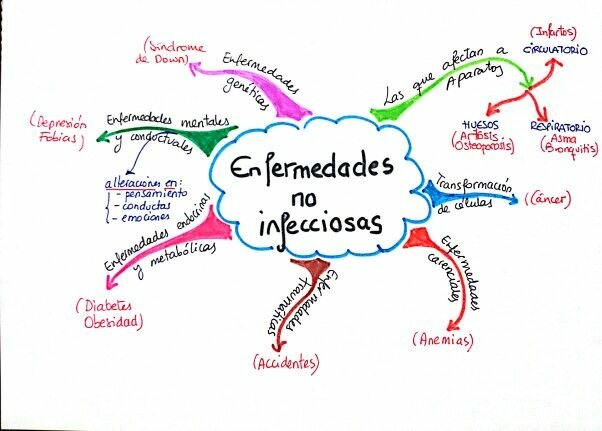 Enfermedades
no
infecciosas
Enfermedades
genéticas
(Síndrome
de Down)
Las que afectan a
Aparatos
(Infartos)
CIRCULATORIO
HUESOS
(Artosis
Osteoporosis)
RESPIRATORIO
(Asma
Bronquitis)
Transformación
de células
(Cáncer)
Enfermedades
carenciales
(Anemias)
Enfermedades
Traumáticas
(Accidentes)
Enfermedades endocrinas
y metabólicas
(Diabetes
Obesidad)
Enfermedades mentales
y conductuales
(Depresión
Fobias)
alteraciones en:
- pensamiento
- conductas
- emociones